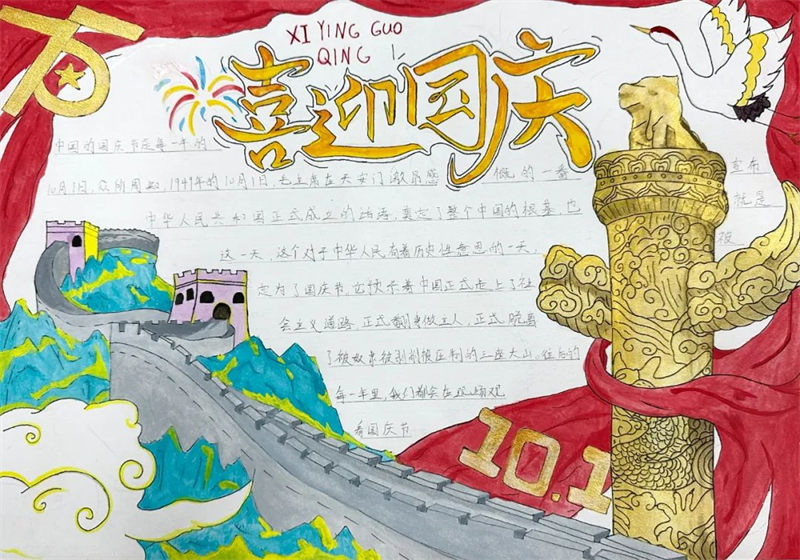 XI YING GUO
QING
喜迎国庆
中国的国庆节是每一年的
10月1日,众所周知,1949年的10月1日,毛主席在天安门激昂感慨的一番宣布
中华人民共和国正式成立的 奠定了整个中国的根基,也就是
这一天,这个对于中华人民有着历史性意思的一天,被
定为了国庆节,它预示着中国正式走上了社
会主义道路,正式翻身做主人,正式脱离
了被奴隶被剥削被压制的三座大山。往后的
每一年里,我们都会在现场观
看国庆节
10.1